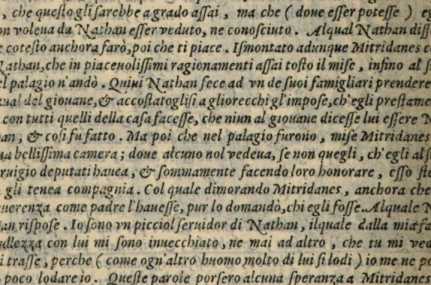 , che queſto gli ſarebbe a grado aſſai, ma che (doue eſſer poteſſe) eg
on voleua da Nathan eſſer veduto, ne conoſciuto. Alqual Nathan diſſ
e coteſto anchora farò, poi che ti piace. Iſmontato adunque Mitridanes c
athan, che in piaceuoliſſimi ragionamenti aſſai toſto il miſe, inſino al ſ
el palagio n'andò. Quiui Nathan fece ad vn de ſuoi famigliari prendere
ual del giouane, & accoſtatogliſi a gli orecchi gl'impoſe, ch'egli preſtame
con tutti quelli della caſa faceſſe, che niun al giouane diceſſe lui eſſere N
an, & coſi fu fatto. Ma poi che nel palagio furono, miſe Mitridanes
na belliſſima camera; doue alcuno nol vedeua, ſe non quegli, ch'egli al ſ
ruigio deputati hauea, & ſommamente facendo loro honorare, eſſo ſte
gli tenea compagnia. Col quale dimorando Mitridanes, anchora che
uerenza come padre l'haueſſe, pur lo domandò, chi egli foſſe. Alquale N
an riſpoſe. Io ſono vn picciol ſeruidor di Nathan, ilquale dalla mia fa
ullezza con lui mi ſono inuecchiato, ne mai ad altro, che tu mi ved
i traſſe, perche (come ogn'altro huomo molto di lui ſi lodi) io me ne po
poco lodare io. Queſte parole porſero alcuna ſperanza a Mitridanes